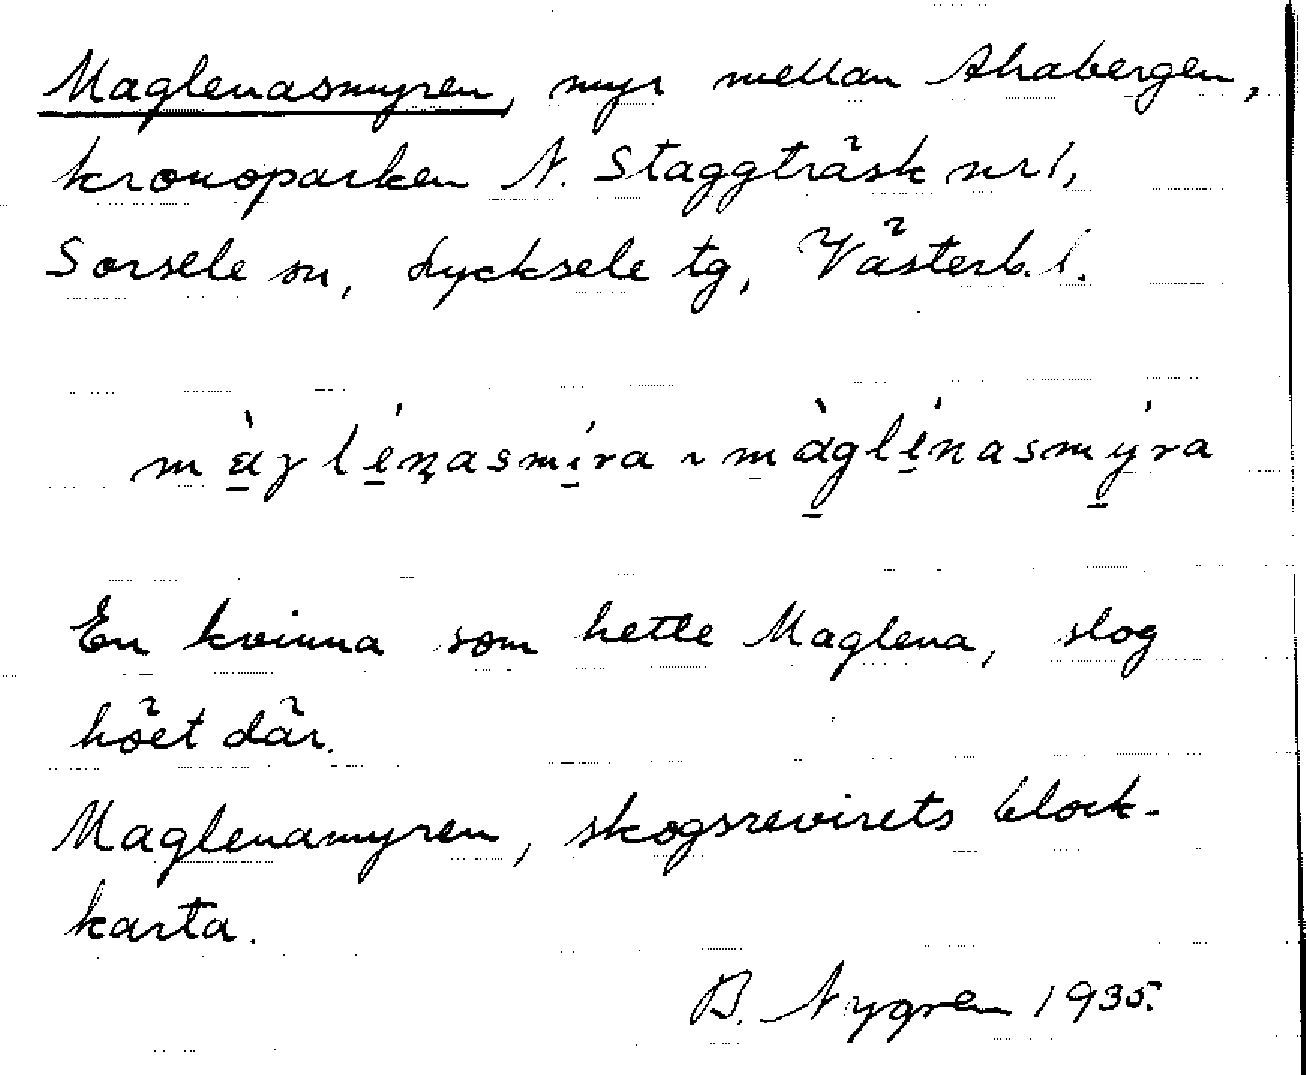 Maglenasmyren, myr mellan Ahabergen,
kronoparken N. Staggträsk nr 1,
Sorsele sn, Lycksele tg, Västerb. l.
En kvinna som hette Maglena, slog
höet där.
Maglenamyren, skogsrevirets block-
karta.
B. Nygren 1935.